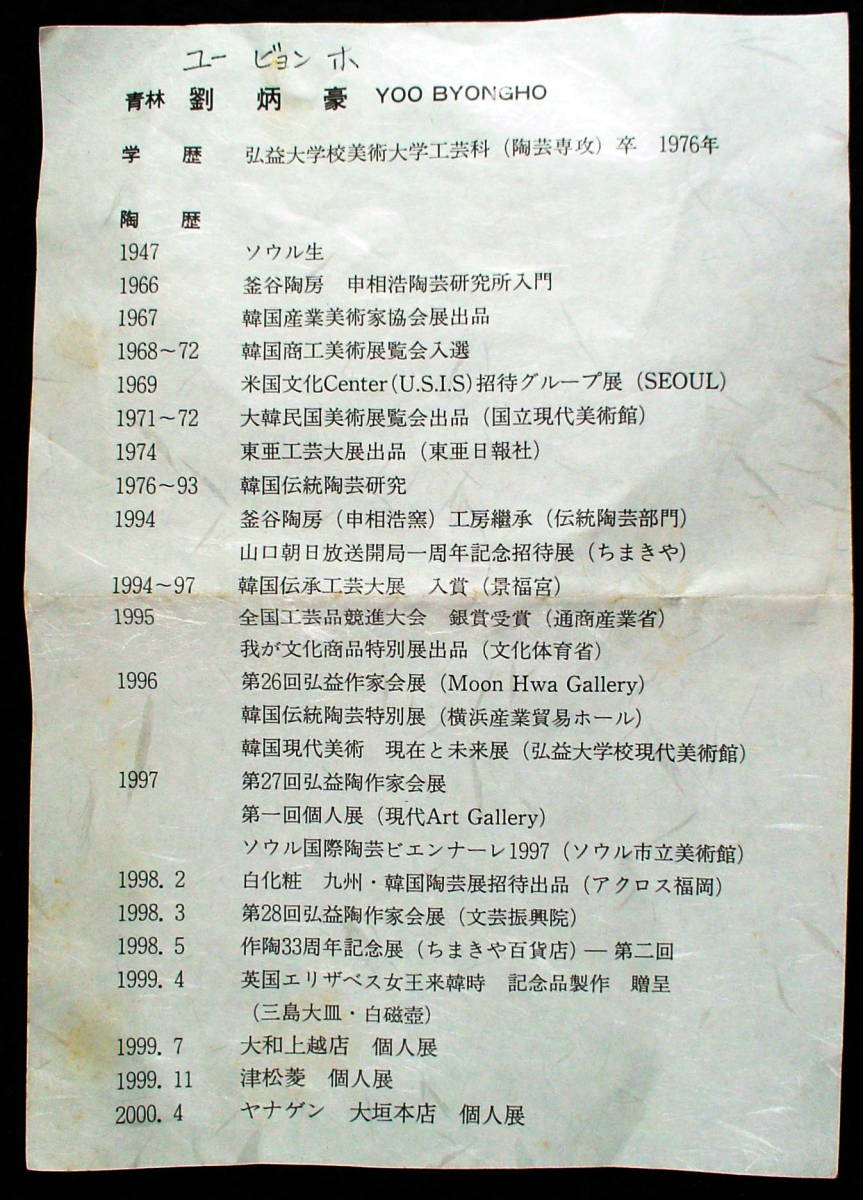 ユー ビョン ホ
青林 劉 炳 豪 YOO BYONGHO
学 歴 弘益大学校美術大学工芸科(陶芸専攻)卒 1976年
陶 歴
1947 ソウル生
1966 釜谷陶房 申相浩陶芸研究所入門
1967 韓国産業美術家協会展出品
1968～72 韓国商工美術展覧会入選
1969 米国文化Center(U.S.I.S)招待グループ展(SEOUL)
1971～72 大韓民国美術展覧会出品(国立現代美術館)
1974 東亜工芸大展出品(東亜日報社)
1976～93 韓国伝統陶芸研究
1994 釜谷陶房(申相浩窯)工房継承(伝統陶芸部門)
山口朝日放送開局一周年記念招待展(ちまきや)
1994～97 韓国伝承工芸大展 入賞(景福宮)
1995 全国工芸品競進大会 銀賞受賞(通商産業省)
我が文化商品特別展出品(文化体育省)
1996 第26回弘益作家会展(Moon Hwa Gallery)
韓国伝統陶芸特別展(横浜産業貿易ホール)
韓国現代美術 現在と未来展(弘益大学校現代美術館)
1997 第27回弘益陶作家会展
第一回個人展(現代Art Gallery)
ソウル国際陶芸ビエンナーレ1997(ソウル市立美術館)
1998. 2 白化粧 九州・韓国陶芸展招待出品(アクロス福岡)
1998. 3 第28回弘益陶作家会展(文芸振興院)
1998. 5 作陶33周年記念展(ちまきや百貨店)― 第二回
1999. 4 英国エリザベス女王来韓時 記念品製作 贈呈
(三島大皿・白磁壺)
1999. 7 大和上越店 個人展
1999. 11 津松菱 個人展
2000. 4 ヤナゲン 大垣本店 個人展